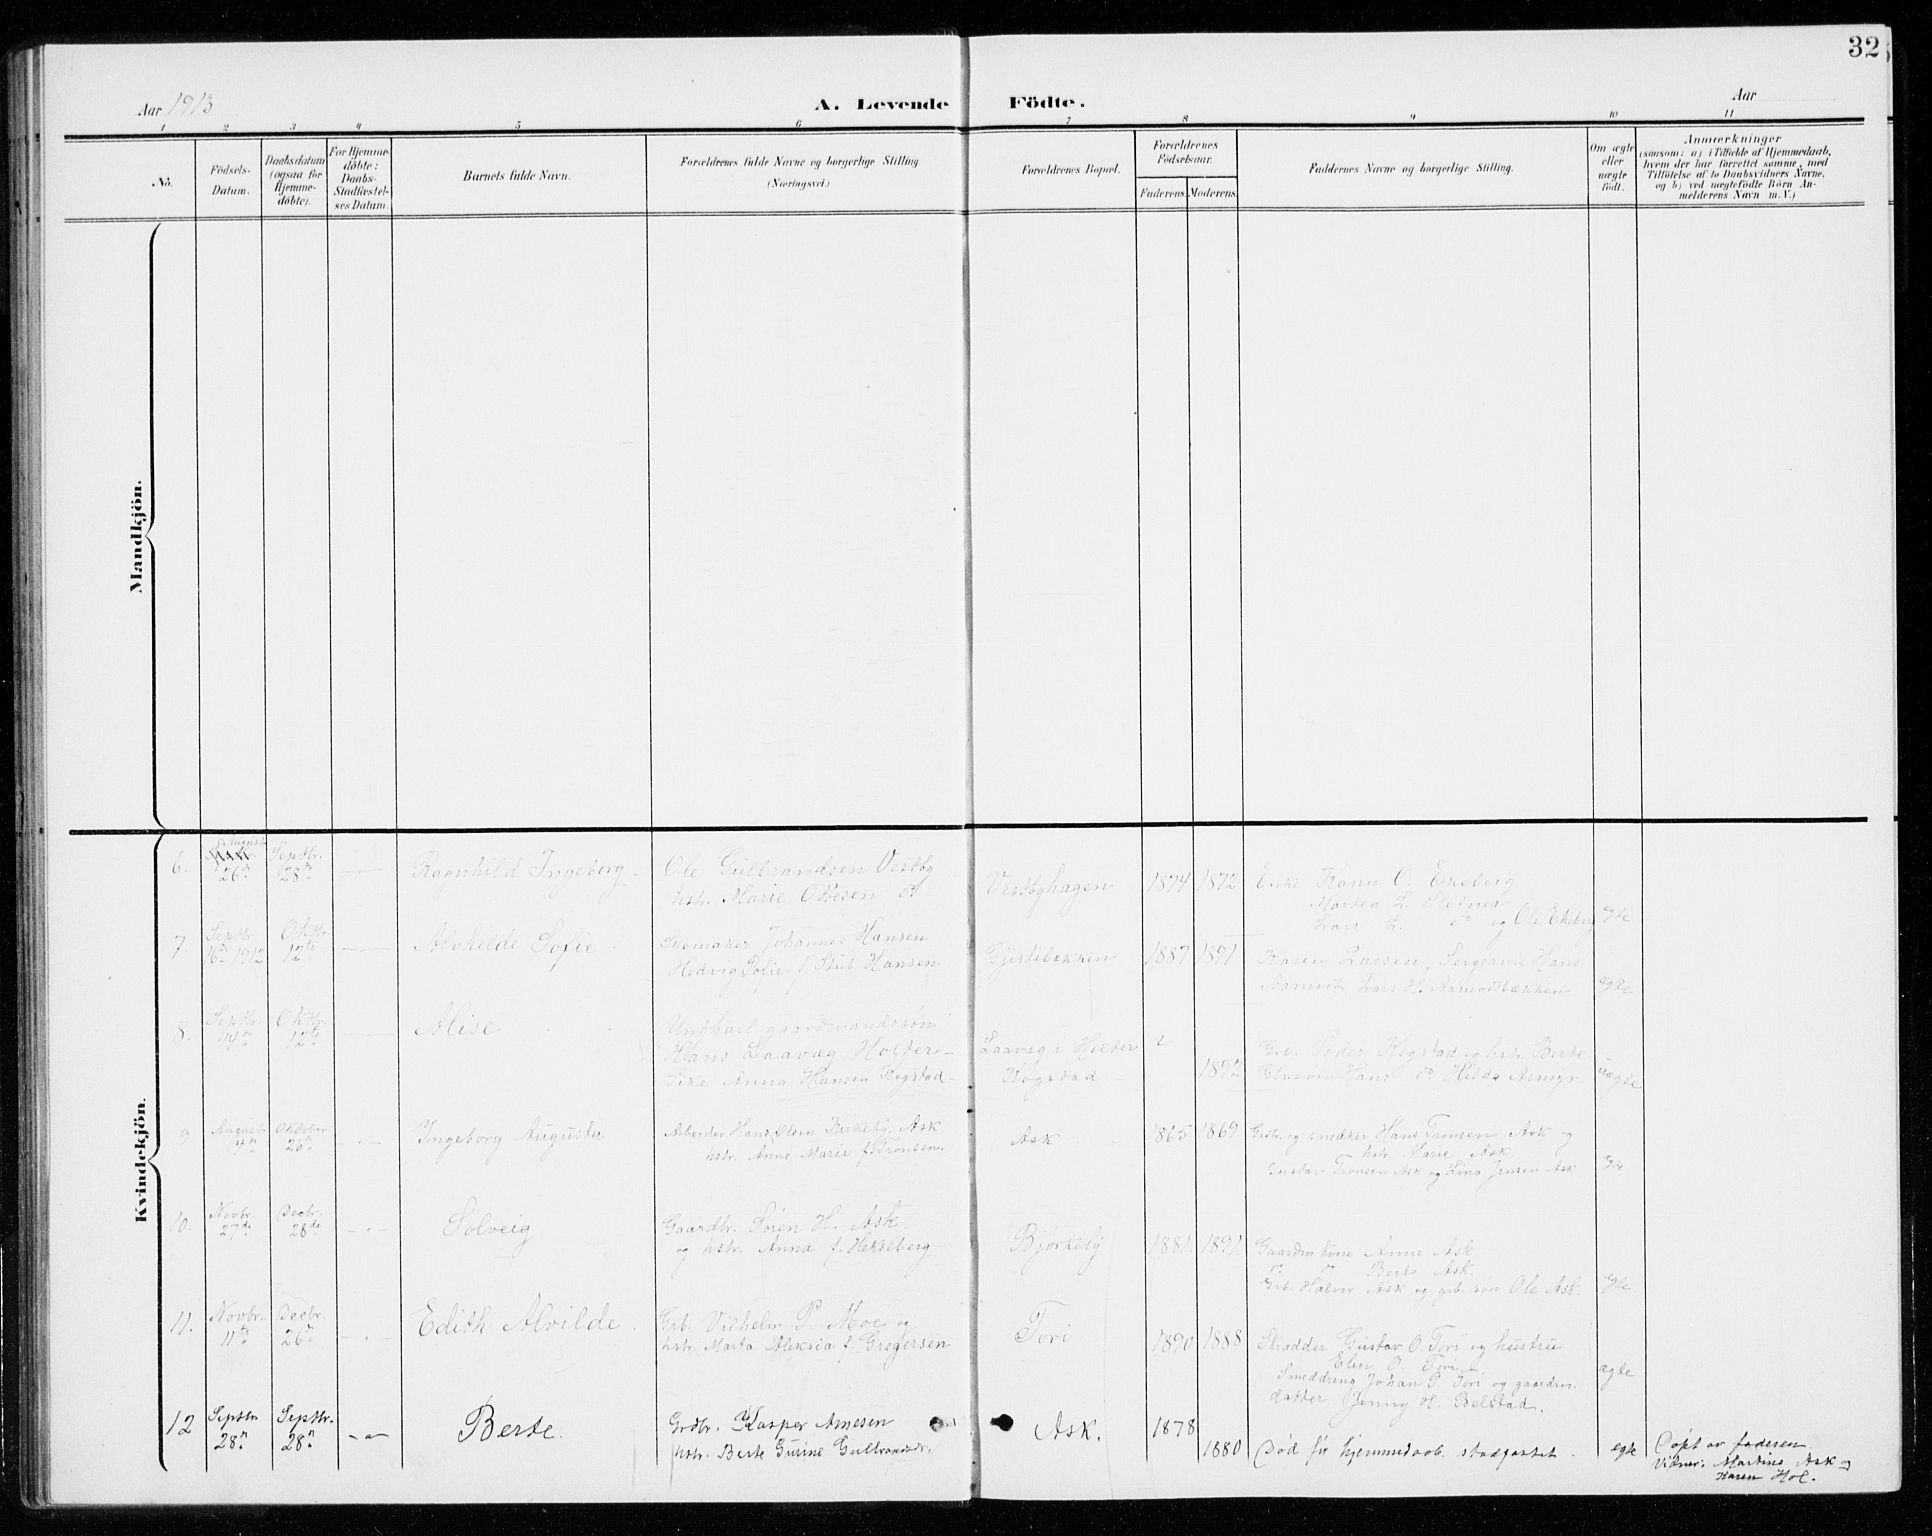 32
Aar 1913
A. Levende Födte.
Aar
1 2 3 4 5 6 7 8 9 10 11
No.
Födsels-Datum.
Daabsdatum (ogsaa for Hjemme-döbte).
For Hjemme-döbte: Daabs-Stadfæstel-ses Datum.
Barnets fulde Navn.
Forældrenes fulde Navne og borgerlige Stilling.
(Næringsvei.)
Forældrenes Bopæl.
Forældrenes Födselsaar.
Faderens. Moderens.
Faddernes Navne og borgerlige Stilling.
Om ægte eller uægte født.
Anmærkninger
(saasom: a) i Tilfælde af Hjemmedaab,
hvem der har forrettet samme, med
Tilföielse af to Daabsvidners Navne,
og b) ved uægtefödte Börn An-
melderens Navn m. V.)
Mandkjön.
Kvindekjön.
6. August 26de Septbr. 28de Ragnhild Ingeborg. Ole Gulbrandsen Vestby
hstr. Marie Olsen
Vestbyhagen 1874 1872 Enke Karen O. Ekeberg
Lars L. og Ole Ekeberg egte
7. Septbr. 16de 1912 Oktbr. 12te Alvhilde Sofie Skomaker Johannes Hansen
Hedvig Sofie f. Stub Hansen
1887 1891 Karen Larsen, Sergeant Hans
Aamodt, Lars H. Aamodtbakken egte
8. Septbr. 14de Oktbr. 12te Alise Ungkarl gaardmandssøn
Hans Laavæg Holter
Pike Anna Hansen Kogstad
Laavæg i Holter
Kogstad 1892 Grb. Peder Kogstad og hstr. Berte
Hans Hilda uægte
9. August 14de Oktober 26de Ingeborg Augusta Arbeider Hans Olsen Kirkeby, Ask
hstr. Anne Marie f. Tronsen.
Ask 1865 1869 Grdbr. og snedker Hans Tronsen Ask og
hstr. Marie Ask
Gustav Tronsen Ask og Lina Jensen Ask egte
10. Novbr. 27de Decbr. 28de Solveig Gaardbr. Søren H. Ask
og hstr. Anna f. Hekseberg
Bjørkeby 1881. 1891. Gaardm. kone Anne Ask
Berte Ask.
Grb. Halvor Ask og grb. søn Ole Ask. Egte.
11. Novbr. 11te Decbr. 26de Edith Alvilde. Grb. Vilhelm P. Moe og
hstr. Marta Aleksia f. Gregersen
Tori 1890 1888 Skrædder Gustav O. Tori og hustru
Elen O. Tori
Smeddreng Johan P. Tori og gaardm.
datter Jenny H. Belstad. ægte
12 Septbr. 28de Septbr. 28de Berte. Grdbr. Kasper Arnesen
hstr. Berte Gurine Gulbrandsdr.
Ask. 1878 1880 Død før hjemmedaab. stadfæstet. egte Døpt av faderen
Vidner: Martine Ask og
Karen Hol.